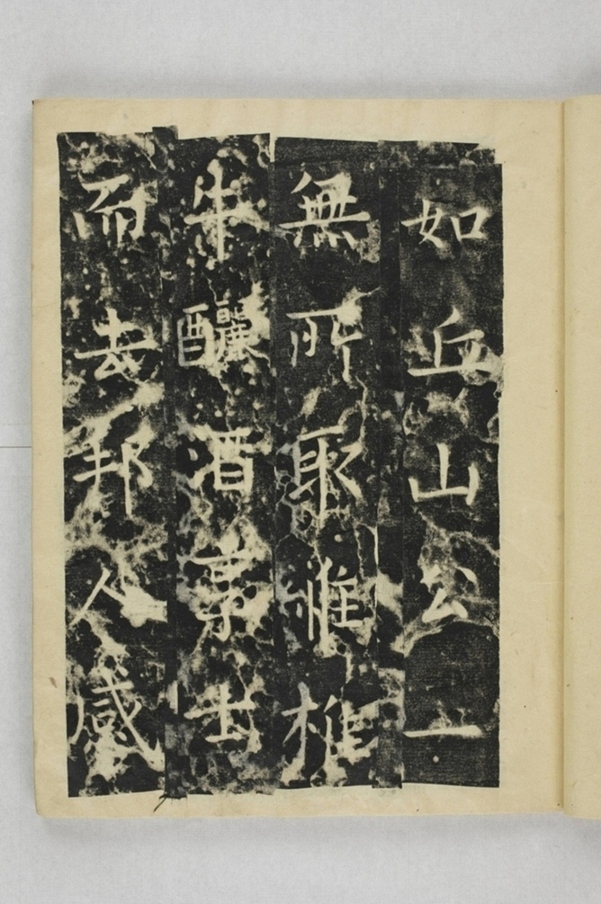 如丘山公一
無所取惟椎
牛釀酒享士
而去邦人感